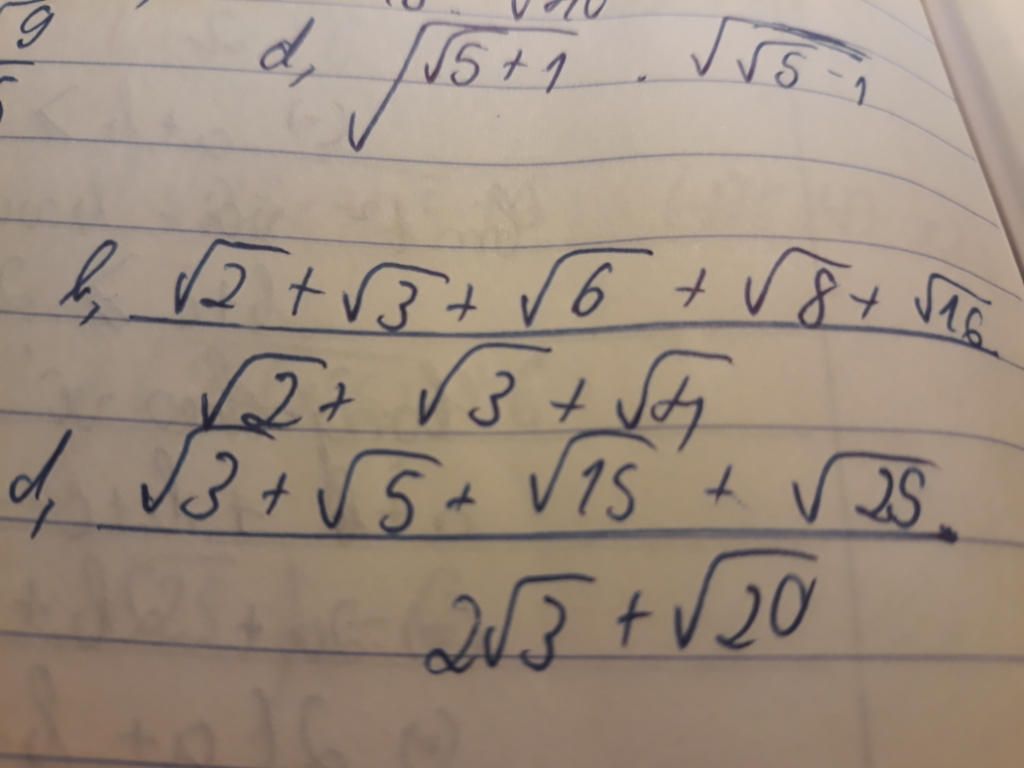 √9
d, √(√5+1) · √(√5-1)
b, (√2 + √3 + √6 + √8 + √16) / (√2 + √3 + √4)
d, (√3 + √5 + √15 + √25) / (2√3 + √20)